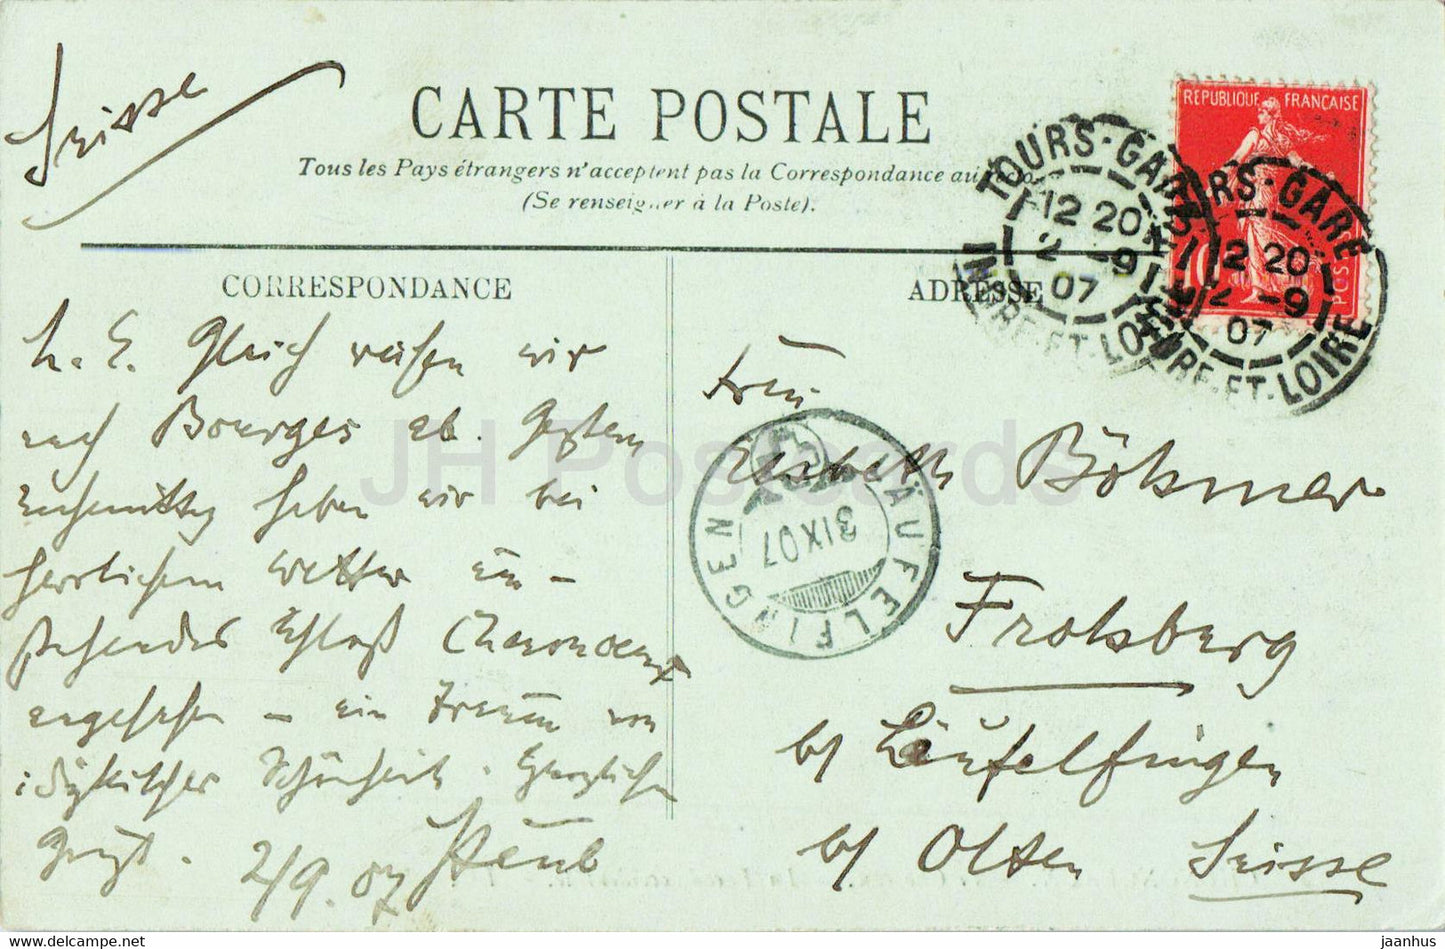 Suisse
CARTE POSTALE
Tous les Pays étrangers n'acceptent pas la Correspondance au recto
(Se renseigner à la Poste).
REPUBLIQUE FRANÇAISE
10
POSTES
TOURS-GARE
12 20
2 -9
07
INDRE-ET-LOIRE
TOURS-GARE
12 20
2 -9
07
INDRE-ET-LOIRE
CORRESPONDANCE
ADRESSE
L. E. Gleich reisen wir
nach Bourges ab. Gestern
nachmittag haben wir bei
herrlichem Wetter
Schloß Chenonceaux
angesehen – ein Traum von
idyllischer Schönheit. Herzlichen
Gruß.
2/9.07
Frau
Elisabeth Böhmer
Frohberg
b/ Läufelfingen
b/ Olten Suisse
LÄUFELFINGEN
3 IX 07
JH Postcards
https://jhpostcards.net
jaanhus